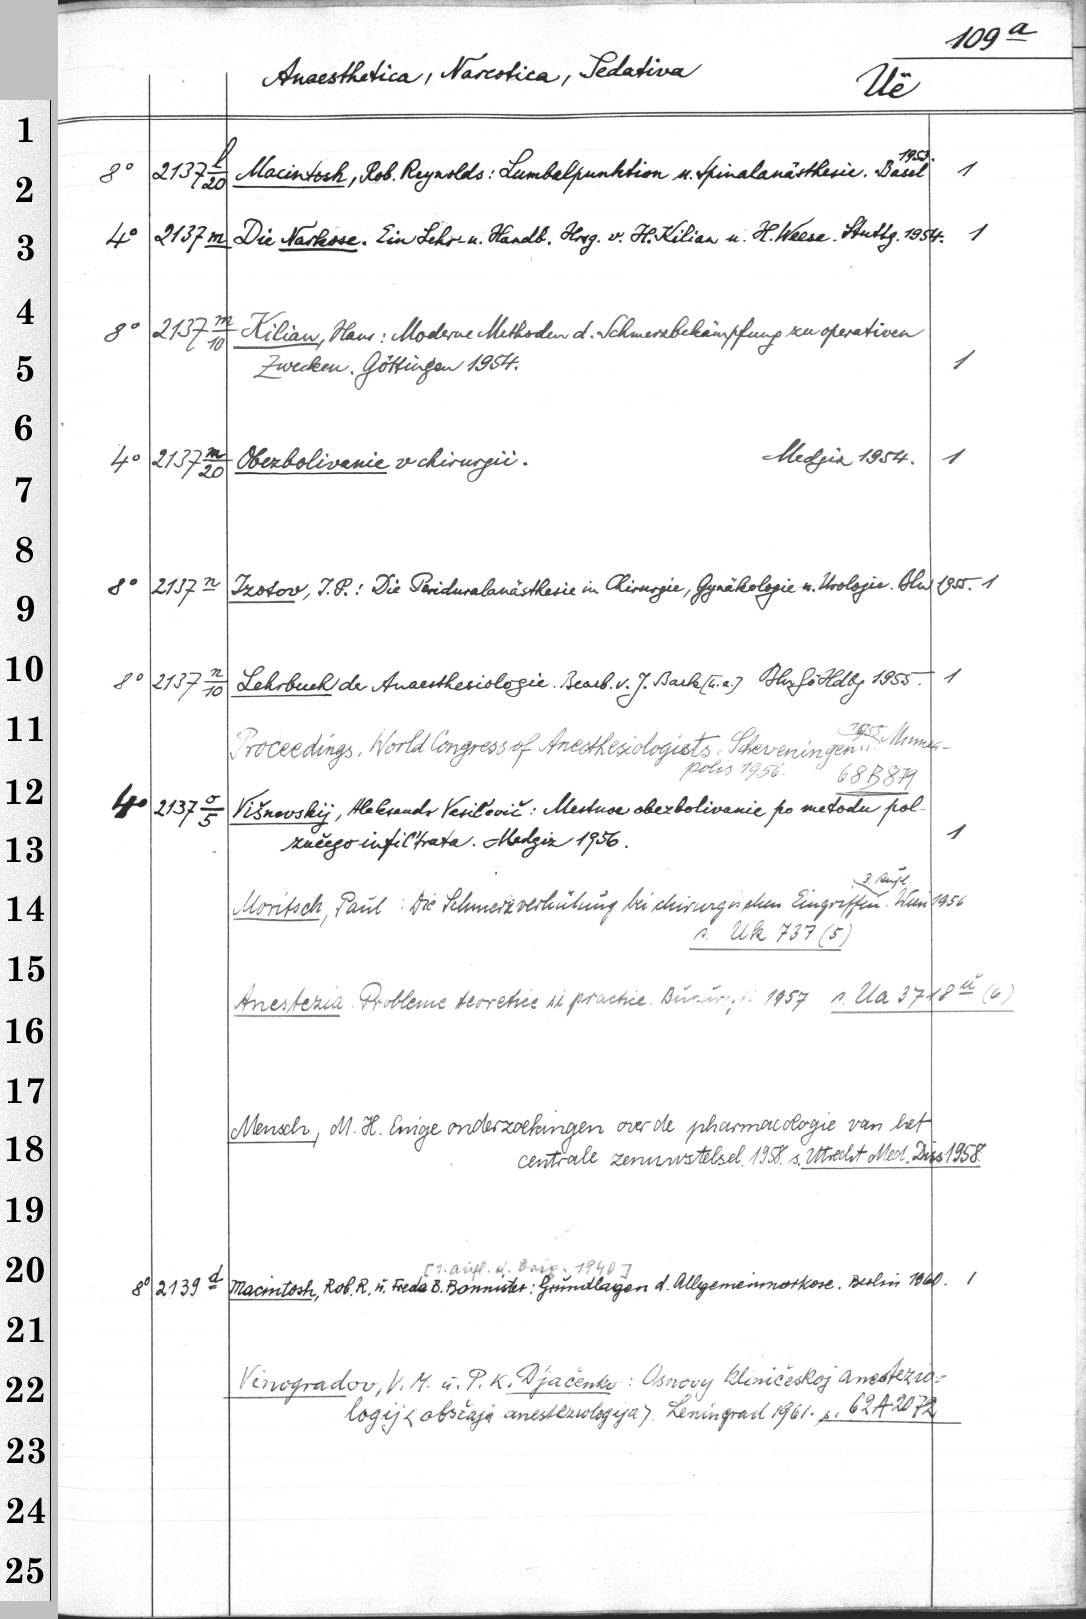 109 a
Anaesthetica, Narcotica, Sedativa Uë
1
2
3
4
5
6
7
8
9
10
11
12
13
14
15
16
17
18
19
20
21
22
23
24
25
8° 2137 l/20 Macintosh, Rob. Reynolds: Lumbalpunktion u. Spinalanästhesie. Basel 1953. 1
4° 2137 m Die Narkose. Ein Lehr- u. Handb. Hrsg. v. H. Kilian u. H. Weese. Stuttg. 1954. 1
8° 2137 m/10 Kilian, Hans: Moderne Methoden d. Schmerzbekämpfung zu operativen
Zwecken. Göttingen 1954. 1
4° 2137 m/20 Obezbolivanie v chirurgii. Medgiz 1954. 1
8° 2137 n Izotov, I.P.: Die Periduralanästhesie in Chirurgie, Gynäkologie u. Urologie. Bln 1955. 1
8° 2137 n/10 Lehrbuch der Anaesthesiologie. Bearb. v. J. Bark [u.a.] 1955. 1
Proceedings. World Congress of Anesthesiologists. Scheveningen 1955. Minnea-
polis 1956. 68 B 879
4° 2137 o/5 Višnevskij, Aleksandr Vasil'evič: Mestnoe obezbolivanie po metodu pol-
zučego infil'trata. Medgiz 1956. 1
Moritsch, Paul: Die Schmerzverhütung bei chirurgischen Eingriffen. 3. Aufl. Wien 1956
s. Uk 737 (5)
Anestezia. Probleme teoretice si practice. 1957 s. Ua 3718 ü (6)
Mensch, M. H. Enige onderzoekingen over de pharmacologie van het
centrale zenuwstelsel. 1958. s. Utrecht Med. Diss 1958
[1. Aufl. u. 1940]
8° 2139 d Macintosh, Rob. R. u. Freda B. Bannister: Grundlagen d. Allgemeinnarkose. Berlin 1960. 1
Vinogradov, V. M. u. P. K. D'jačenko: Osnovy kliničeskoj anestezio-
logij <obščaja anesteziologija>. Leningrad 1961. s. 62 A 2072